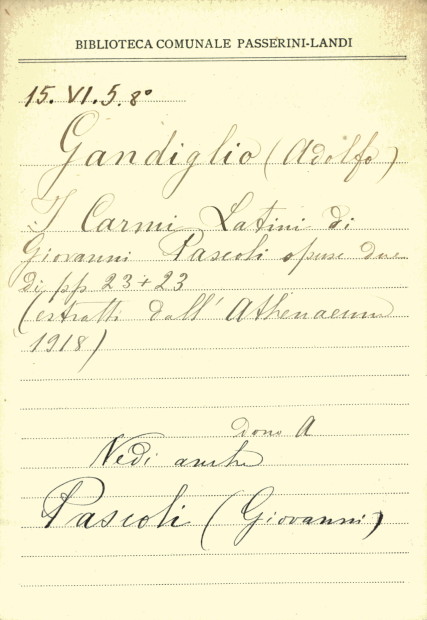 BIBLIOTECA COMUNALE PASSERINI-LANDI
15. VI. 5. 8°
Gandiglio (Adolfo)
I Carmi Latini di
Giovanni Pascoli opusc due
di pp 23+23
(estratti dall'Athenaeum
1918)
dono A
Vedi anche
Pascoli (Giovanni)